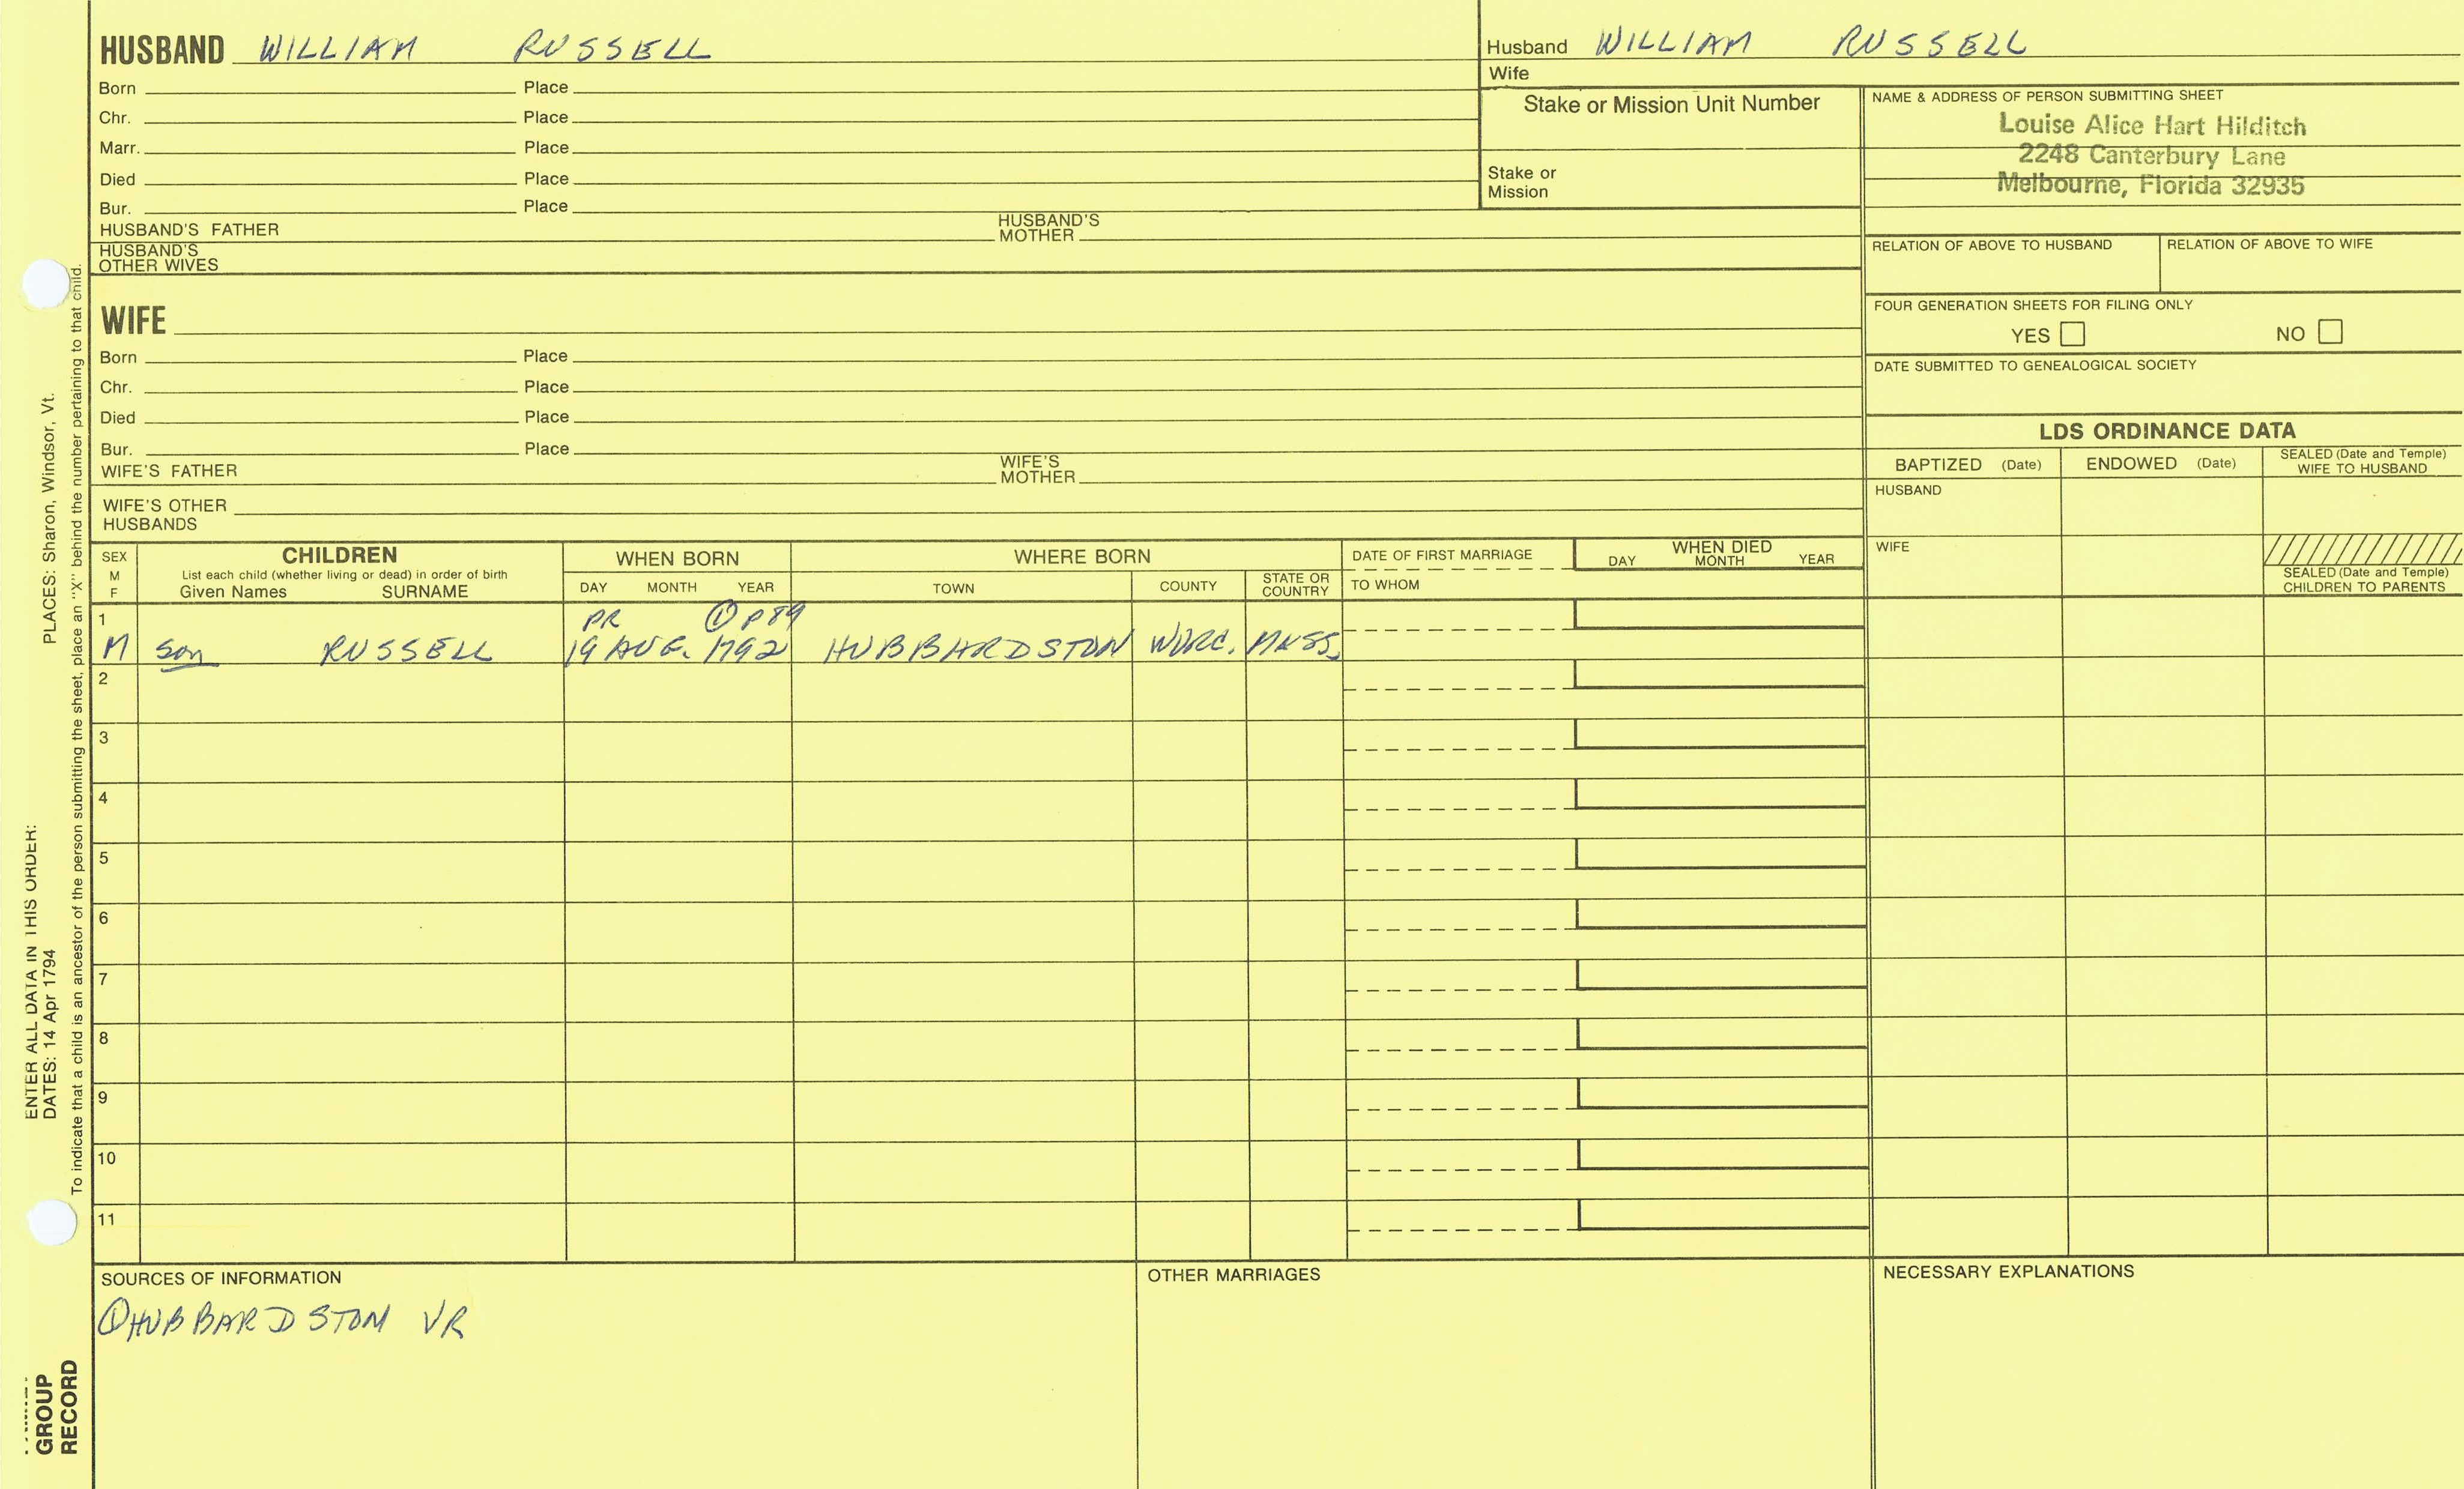 HUSBAND WILLIAM RUSSELL
Born Place
Chr. Place
Marr. Place
Died Place
Bur. Place
HUSBAND'S FATHER HUSBAND'S MOTHER
HUSBAND'S OTHER WIVES
Husband WILLIAM RUSSELL
Wife
Stake or Mission Unit Number
Stake or
Mission
NAME & ADDRESS OF PERSON SUBMITTING SHEET
Louise Alice Hart Hilditch
2248 Canterbury Lane
Melbourne, Florida 32935
RELATION OF ABOVE TO HUSBAND RELATION OF ABOVE TO WIFE
FOUR GENERATION SHEETS FOR FILING ONLY
YES NO
DATE SUBMITTED TO GENEALOGICAL SOCIETY
WIFE
Born Place
Chr. Place
Died Place
Bur. Place
WIFE'S FATHER WIFE'S MOTHER
WIFE'S OTHER
HUSBANDS
LDS ORDINANCE DATA
BAPTIZED (Date) ENDOWED (Date) SEALED (Date and Temple) WIFE TO HUSBAND
HUSBAND
WIFE
SEALED (Date and Temple)
CHILDREN TO PARENTS
SEX M F
CHILDREN
List each child (whether living or dead) in order of birth
Given Names SURNAME
WHEN BORN
DAY MONTH YEAR
WHERE BORN
TOWN COUNTY STATE OR COUNTRY
DATE OF FIRST MARRIAGE
TO WHOM
WHEN DIED
DAY MONTH YEAR
1 PR ① P89
M son RUSSELL 19 AUG. 1792 HUBBARDSTON WORC. MASS.
2
3
4
5
6
7
8
9
10
11
SOURCES OF INFORMATION
① HUBBARDSTON VR
OTHER MARRIAGES
NECESSARY EXPLANATIONS
GROUP
RECORD
ENTER ALL DATA IN THIS ORDER:
DATES: 14 Apr 1794 PLACES: Sharon, Windsor, Vt.
To indicate that a child is an ancestor of the person submitting the sheet, place an "X" behind the number pertaining to that child.